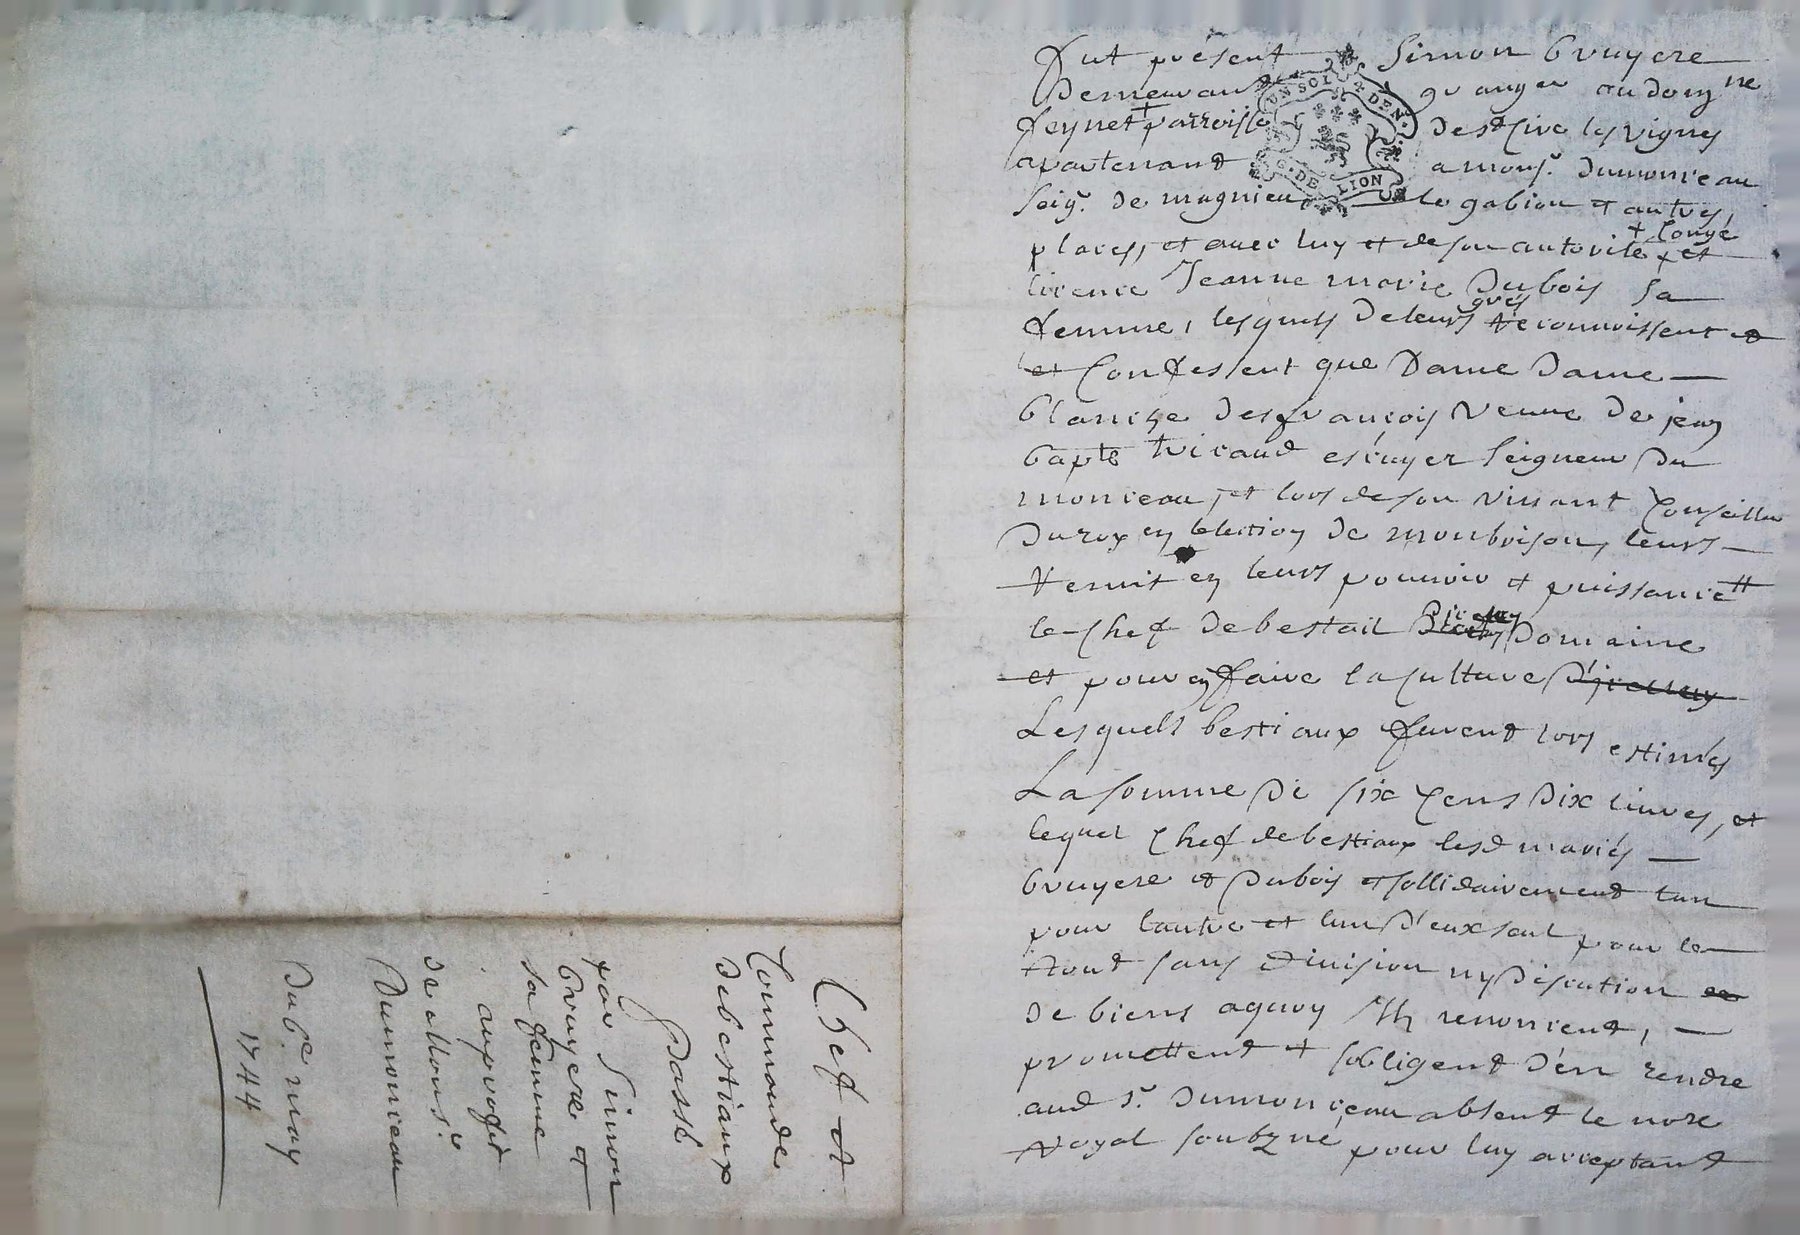 Fut présent Simon bruyere
Demeurant granger au dom.ne
feynet + parroisse de St Cire les vignes
apartenant a mons.r dumonceau
seig.r de magnieu le gabion et autres
places, et avec luy et de son autorité + congé et
licence Jeanne marie Dubois sa
femme, lesquels de leurs grés reconnoissent et
et Confessent que Dame Dame
blanche desfrançois veuve de jean
bapte tricaud escuyer seigneur du
monceau, et lors de son vivant Conseiller
du roy en lelection de monbrison, leurs
remit en leurs pouvoir et puissance
le Chef de bestail Domaine
et pour en faire la culture d'jcelluy
Lesquels bestiaux furent lors estimés
La somme de six cens dix livres, et
lequel Chef de bestiaux lesd mariés
bruyere et Dubois et sollidairement l'un
pour lautre et lun D'eux seul pour le
tout sans Division ny Discution
de biens aquoy Ils renoncent,
promettent et sobligent d'en rendre
aud s.r Dumonceau absent le no.re
Royal soubzné pour luy acceptant
UN SOL 4 DEN.
G. DE LION
Chef et
Commande
de bestiaux
Passé
par Simon
bruyere et
sa femme
au profit
de Mons.r
Dumonceau
Du 6e may
1744